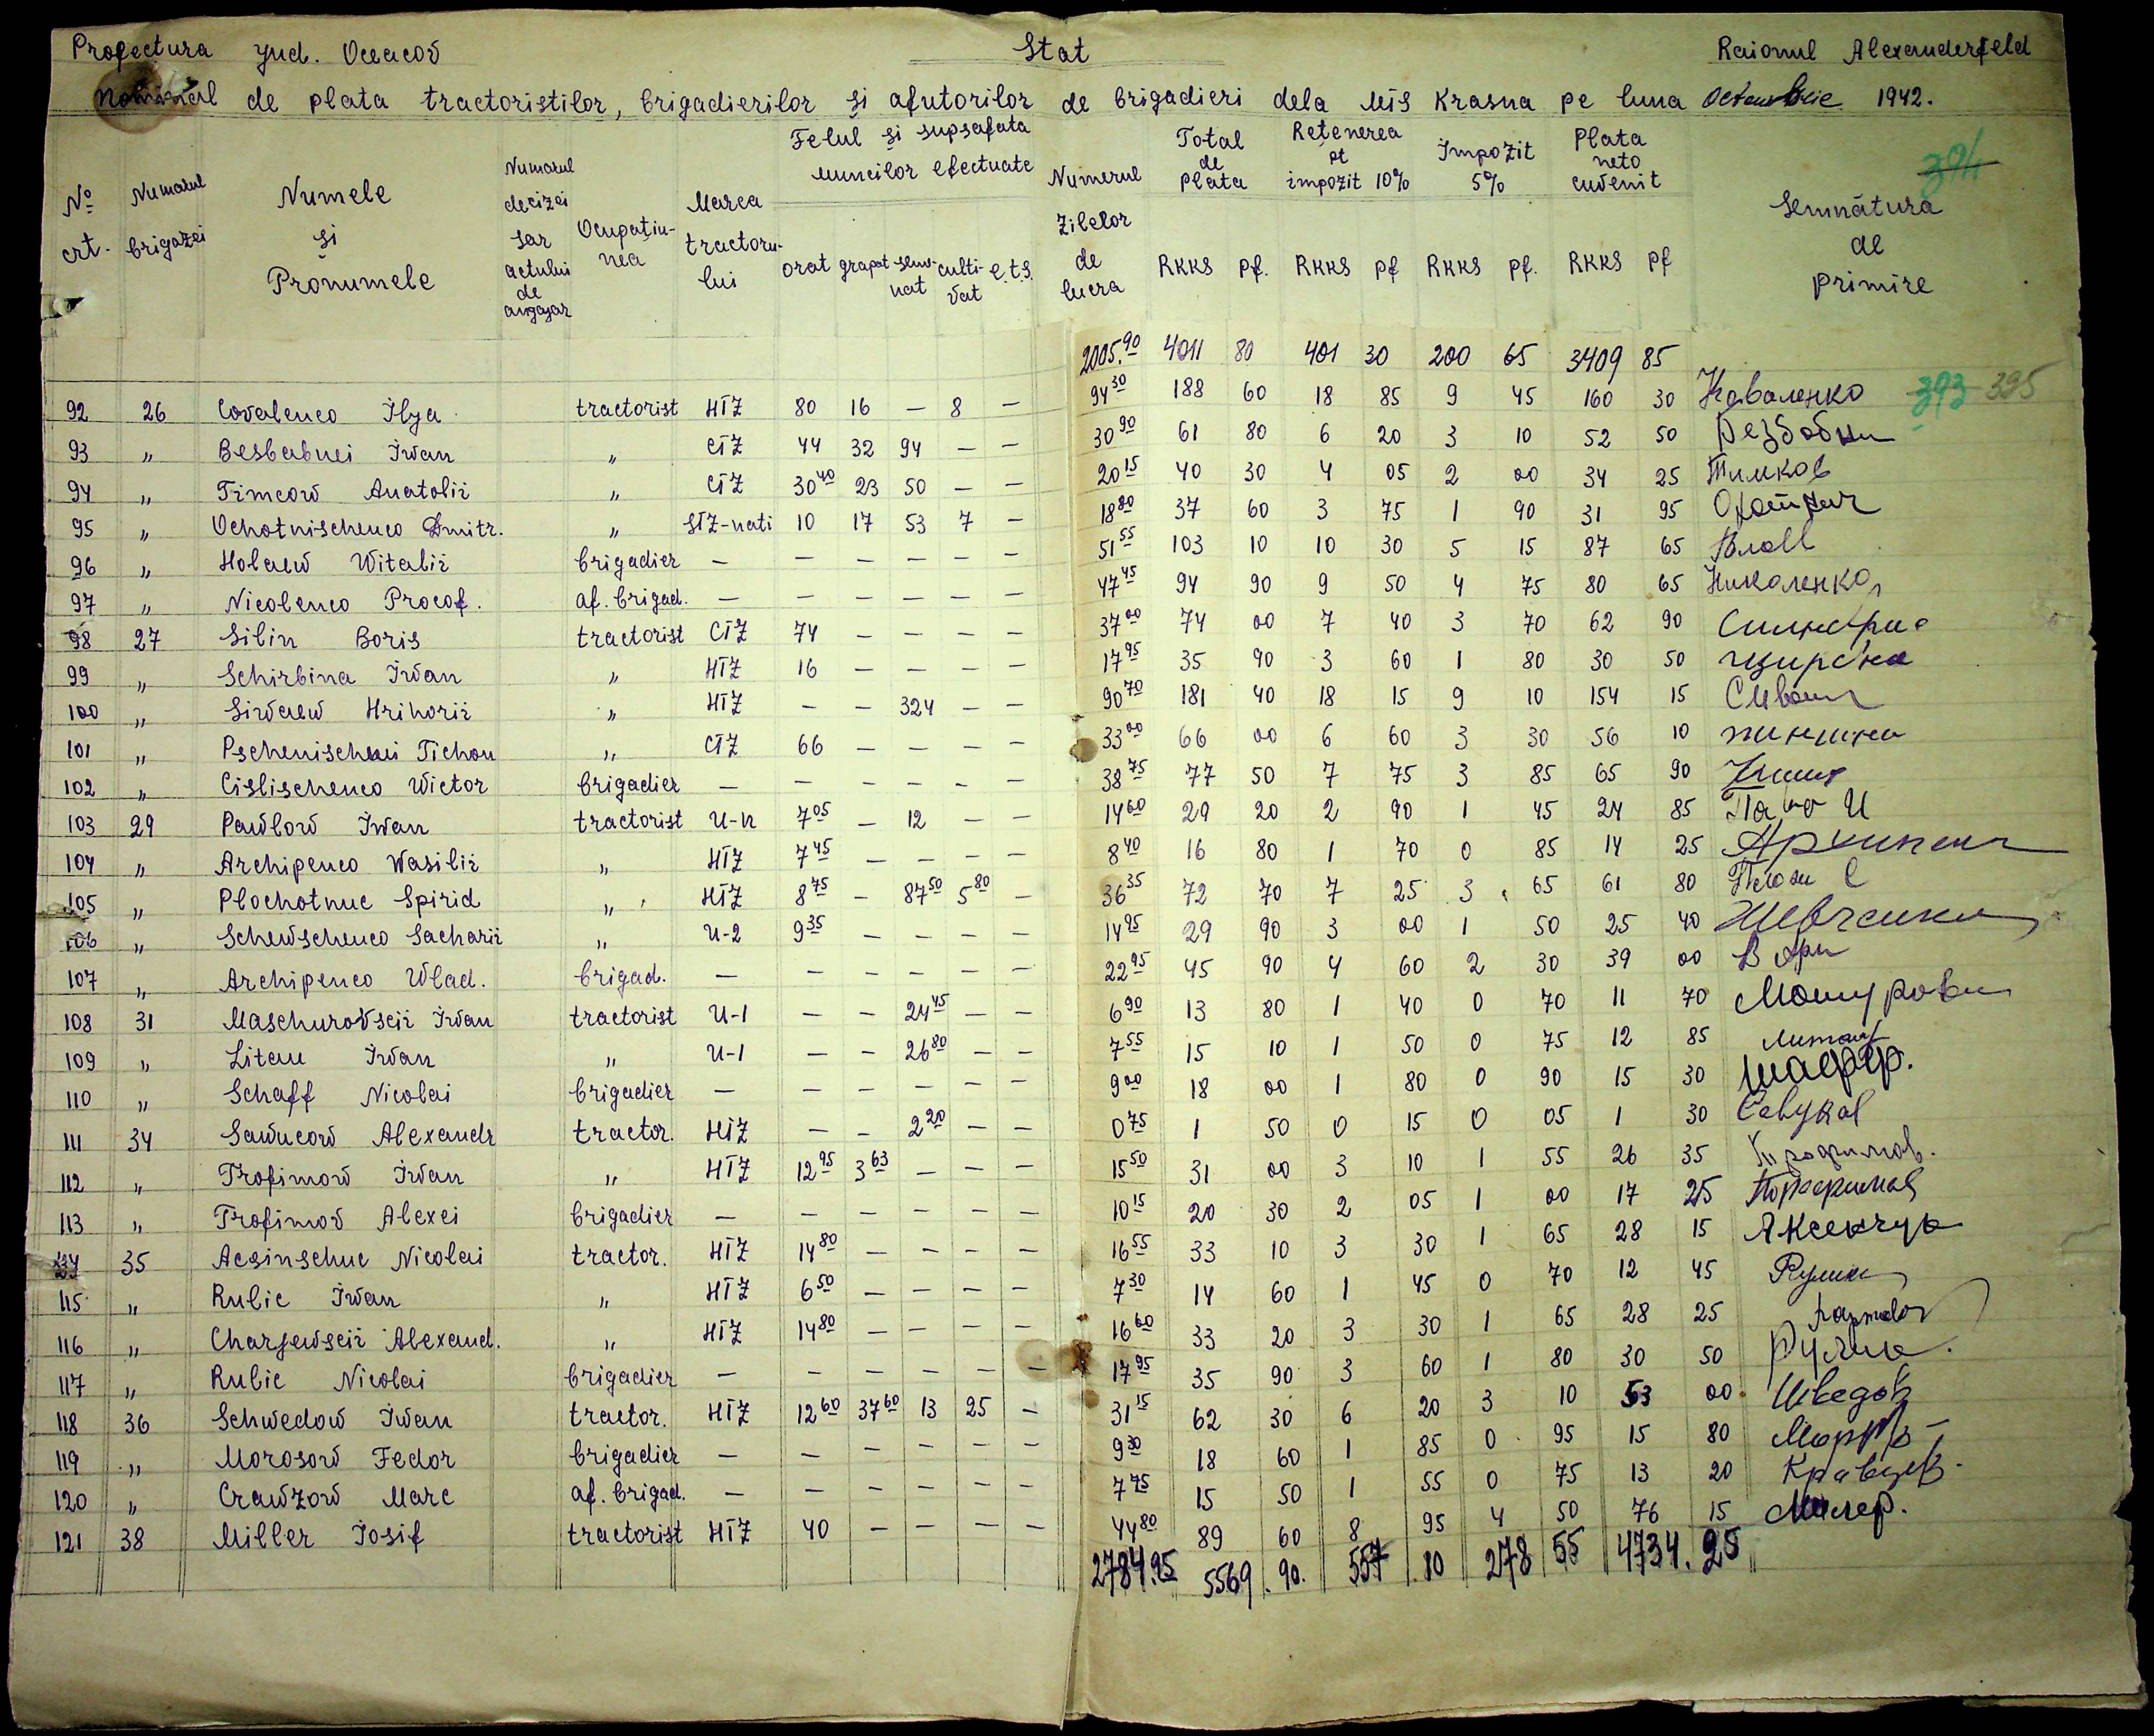 Profectura jud. Oceacov Stat Raionul Alexanderfeld
Nominal de plata tractoristilor, brigadierilor și ajutorilor de brigadieri dela MTS Krasna pe luna Octombrie 1942.
No crt. Numarul brigazei Numele și Pronumele Numarul decizei sar actului de angajar Ocupațiunea Marca tractorului Felul și supsafata muncilor efectuate orat grapat semnat cultivat e.t.s. Numerul zilelor de lucra Total de plata RKKS pf. Reținerea pt impozit 10% RKKS pf Impozit 5% RKKS pf. Plata neto cuvenit RKKS pf Semnătura de primire
391
2005.90 4011 80 401 30 200 65 3409 85
92 26 Covalenco Ilya tractorist HTZ 80 16 — 8 — 94 30 188 60 18 85 9 45 160 30 Коваленко 393 395
93 „ Besbabnei Iwan „ CTZ 44 32 94 — — 30 90 61 80 6 20 3 10 52 50 Безбобни
94 „ Timcow Anatolii „ CTZ 30 40 23 50 — — 20 15 40 30 4 05 2 00 34 25 Тимков
95 „ Ochotnischenco Dmitr. „ STZ-nati 10 17 53 7 — 18 80 37 60 3 75 1 90 31 95
96 „ Holaew Witalii brigadier — — — — — — 51 55 103 10 10 30 5 15 87 65
97 „ Nicolenco Procof. aj. brigad. — — — — — — 47 45 94 90 9 50 4 75 80 65 Николенко
98 27 Silin Boris tractorist CTZ 74 — — — — 37 00 74 00 7 40 3 70 62 90
99 „ Schirbina Iwan „ HTZ 16 — — — — 17 95 35 90 3 60 1 80 30 50
100 „ Siwaew Hrihorii „ HTZ — — 324 — — 90 70 181 40 18 15 9 10 154 15
101 „ Pschenischnei Tichon „ CTZ 66 — — — — 33 00 66 00 6 60 3 30 56 10
102 „ Cislischenco Wictor brigadier — — — — — 38 75 77 50 7 75 3 85 65 90
103 29 Pawlow Iwan tractorist U-n 7 05 — 12 — — 14 60 29 20 2 90 1 45 24 85
104 „ Archipenco Wasilii „ HTZ 7 45 — — — — 8 40 16 80 1 70 0 85 14 25
105 „ Plochotnuc Spirid „ HTZ 8 75 — 87 50 5 80 — 36 35 72 70 7 25 3 65 61 80
106 „ Schewschenco Sacharii „ U-2 9 35 — — — — 14 95 29 90 3 00 1 50 25 40 Шевченко
107 „ Archipenco Wlad. brigad. — — — — — — 22 95 45 90 4 60 2 30 39 00
108 31 Maschurovscii Iwan tractorist U-1 — — 24 45 — — 6 90 13 80 1 40 0 70 11 70
109 „ Litau Iwan „ U-1 — — 26 80 — — 7 55 15 10 1 50 0 75 12 85
110 „ Schaff Nicolai brigadier — — — — — — 9 00 18 00 1 80 0 90 15 30 Шафф.
111 34 Sawucow Alexandr tractor. HTZ — — 2 20 — — 0 75 1 50 0 15 0 05 1 30
112 „ Trofimow Iwan „ HTZ 12 95 3 63 — — — 15 50 31 00 3 10 1 55 26 35
113 „ Trofimov Alexei brigadier — — — — — — 10 15 20 30 2 05 1 00 17 25
114 35 Acsinschuc Nicolai tractor. HTZ 14 80 — — — — 16 55 33 10 3 30 1 65 28 15
115 „ Rulic Iwan „ HTZ 6 50 — — — — 7 30 14 60 1 45 0 70 12 45
116 „ Charjewscii Alexand. „ HTZ 14 80 — — — — 16 60 33 20 3 30 1 65 28 25
117 „ Rulic Nicolai brigadier — — — — — — 17 95 35 90 3 60 1 80 30 50
118 36 Schwedow Iwan tractor. HTZ 12 60 37 60 13 25 — 31 15 62 30 6 20 3 10 53 00 Шведов
119 „ Morosow Fedor brigadier — — — — — — 9 30 18 60 1 85 0 95 15 80
120 „ Crawzow Marc aj. brigad. — — — — — — 7 75 15 50 1 55 0 75 13 20 Кравцов
121 38 Miller Iosif tractorist HTZ 40 — — — — 44 80 89 60 8 95 4 50 76 15 Милер.
2784.95 5569.90. 557.10 278 55 4734.25